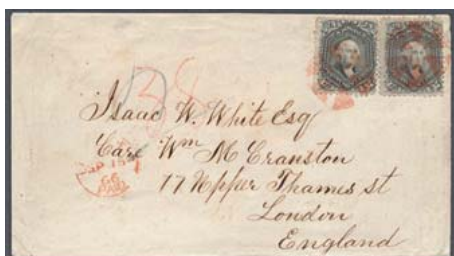 38
Isaac W. White Esq
Care Wm McCranston
17 Upper Thames st
London
England